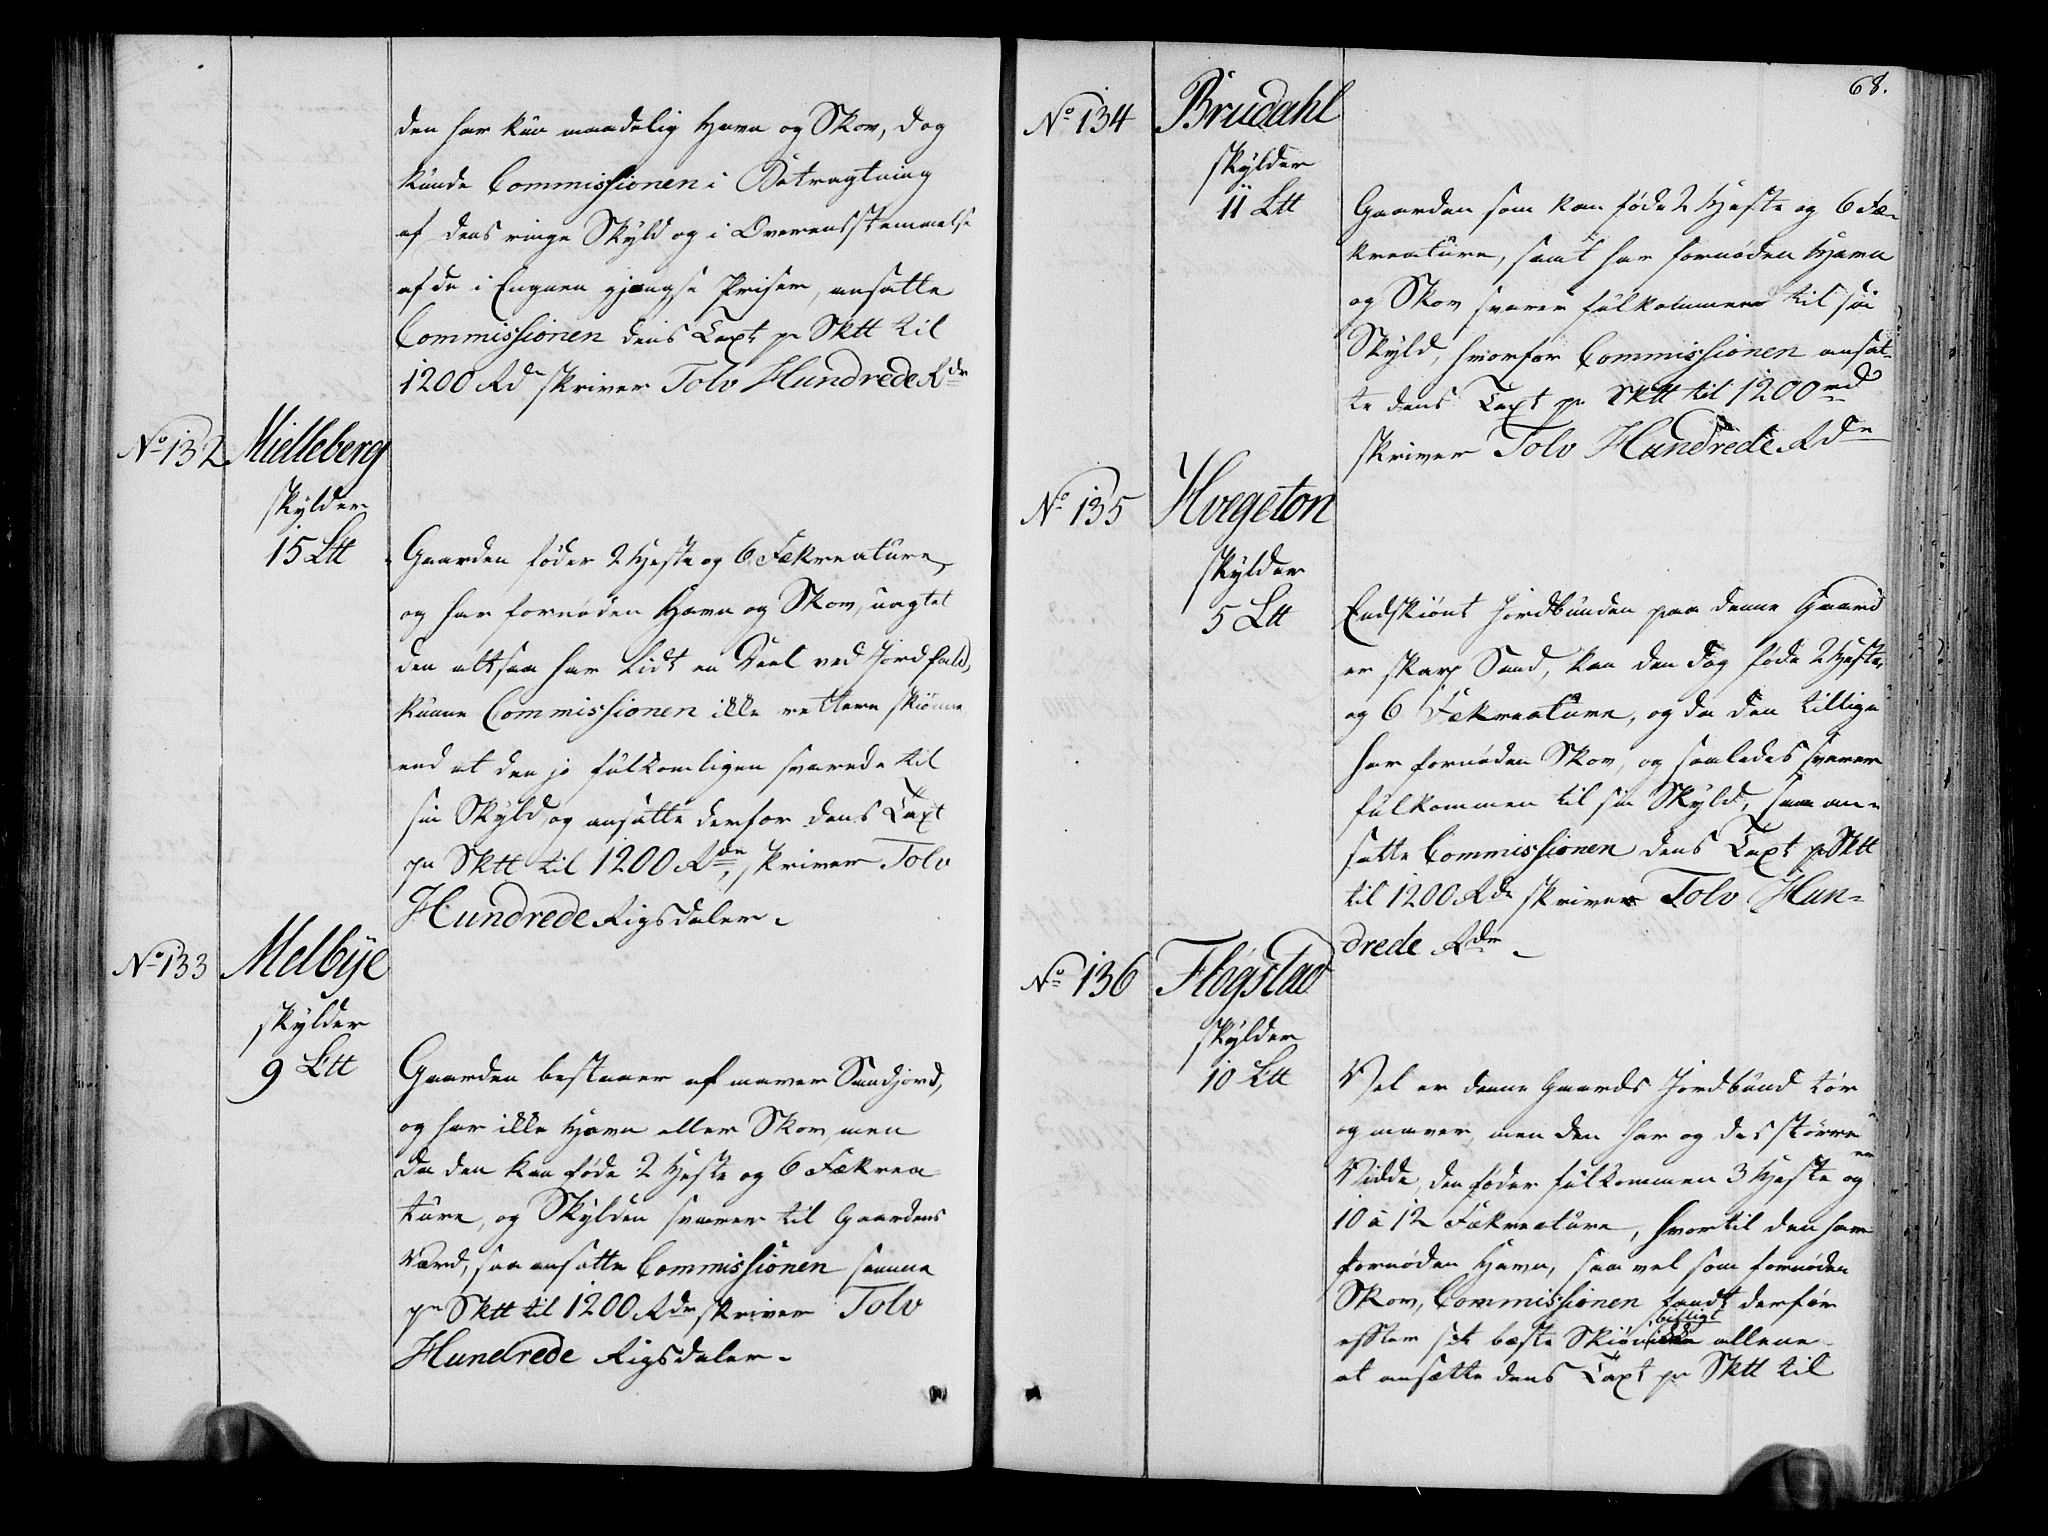 den har kun maadelig Havn og Skov, dog
kunde Commissionen i Betragtning
af dens ringe Skyld og i Overensstemmelse
af de i Egnen gjængse Priser, ansatte
Commissionen dens Taxt pr Sktt til
1200 Rdr skriver Tolv Hundrede Rdr
No 132 Mielleberg
skylder
15 Ltt
Gaarden føder 2 Heste og 6 Fækreature,
og har fornøden Havn og Skov, uagtet
den altsaa har lidt en Deel ved Jordfald,
kunne Commissionen ikke rettere skiønne
end at den jo fulkomligen svarede til
sin Skyld, og ansatte derfor dens Taxt
pr Sktt til 1200 Rdr, skriver Tolv
Hundrede Rigsdaler.
No 133 Melbÿe
skylder
9 Ltt
Gaarden bestaaer af maver Sandjord,
og har ikke Havn eller Skov, men
da den kan føde 2 Heste og 6 Fækrea-
ture, og Skylden svarer til Gaardens
Værd, saa ansatte Commissionen samme
pr Sktt til 1200 Rdr skriver Tolv
Hundrede Rigsdaler.
68.
No 134 Brudahl
skylder
11 Ltt
Gaarden som kan føde 2 Heste og 6 Fæ-
kreature, samt har fornøden Havn
og Skov svarer fulkommen til sin
Skyld, hvorfor Commissionen ansat-
te dens Taxt pr Sktt til 1200 rd
skriver Tolv Hundrede Rdr
No 135 Hvegeton
skylder
5 Ltt
Endskiønt Jordbunden paa denne Gaard
er skarp Sand, kan den dog føde 2 Heste,
og 6 Fækreature, og da den tillige
har fornøden Skov, og saaledes svarer
fulkommen til sin Skyld, saa an-
satte Commissionen dens Taxt pr Sktt
til 1200 Rdr skriver Tolv Hun-
drede Rdr
No 136 Flogstad
skylder
10 Ltt
Vel er denne Gaards Jordbund tør
og maver, men den har og des større
Vidde, den føder fulkommen 3 Heste og
10 à 12 Fækreature, hvortil den har
fornøden Havn, saa vel som fornøden
Skov, Commissionen fandt derfor
efter sit bæste Skiøn billigt allene
at ansætte dens Taxt pr Sktt til